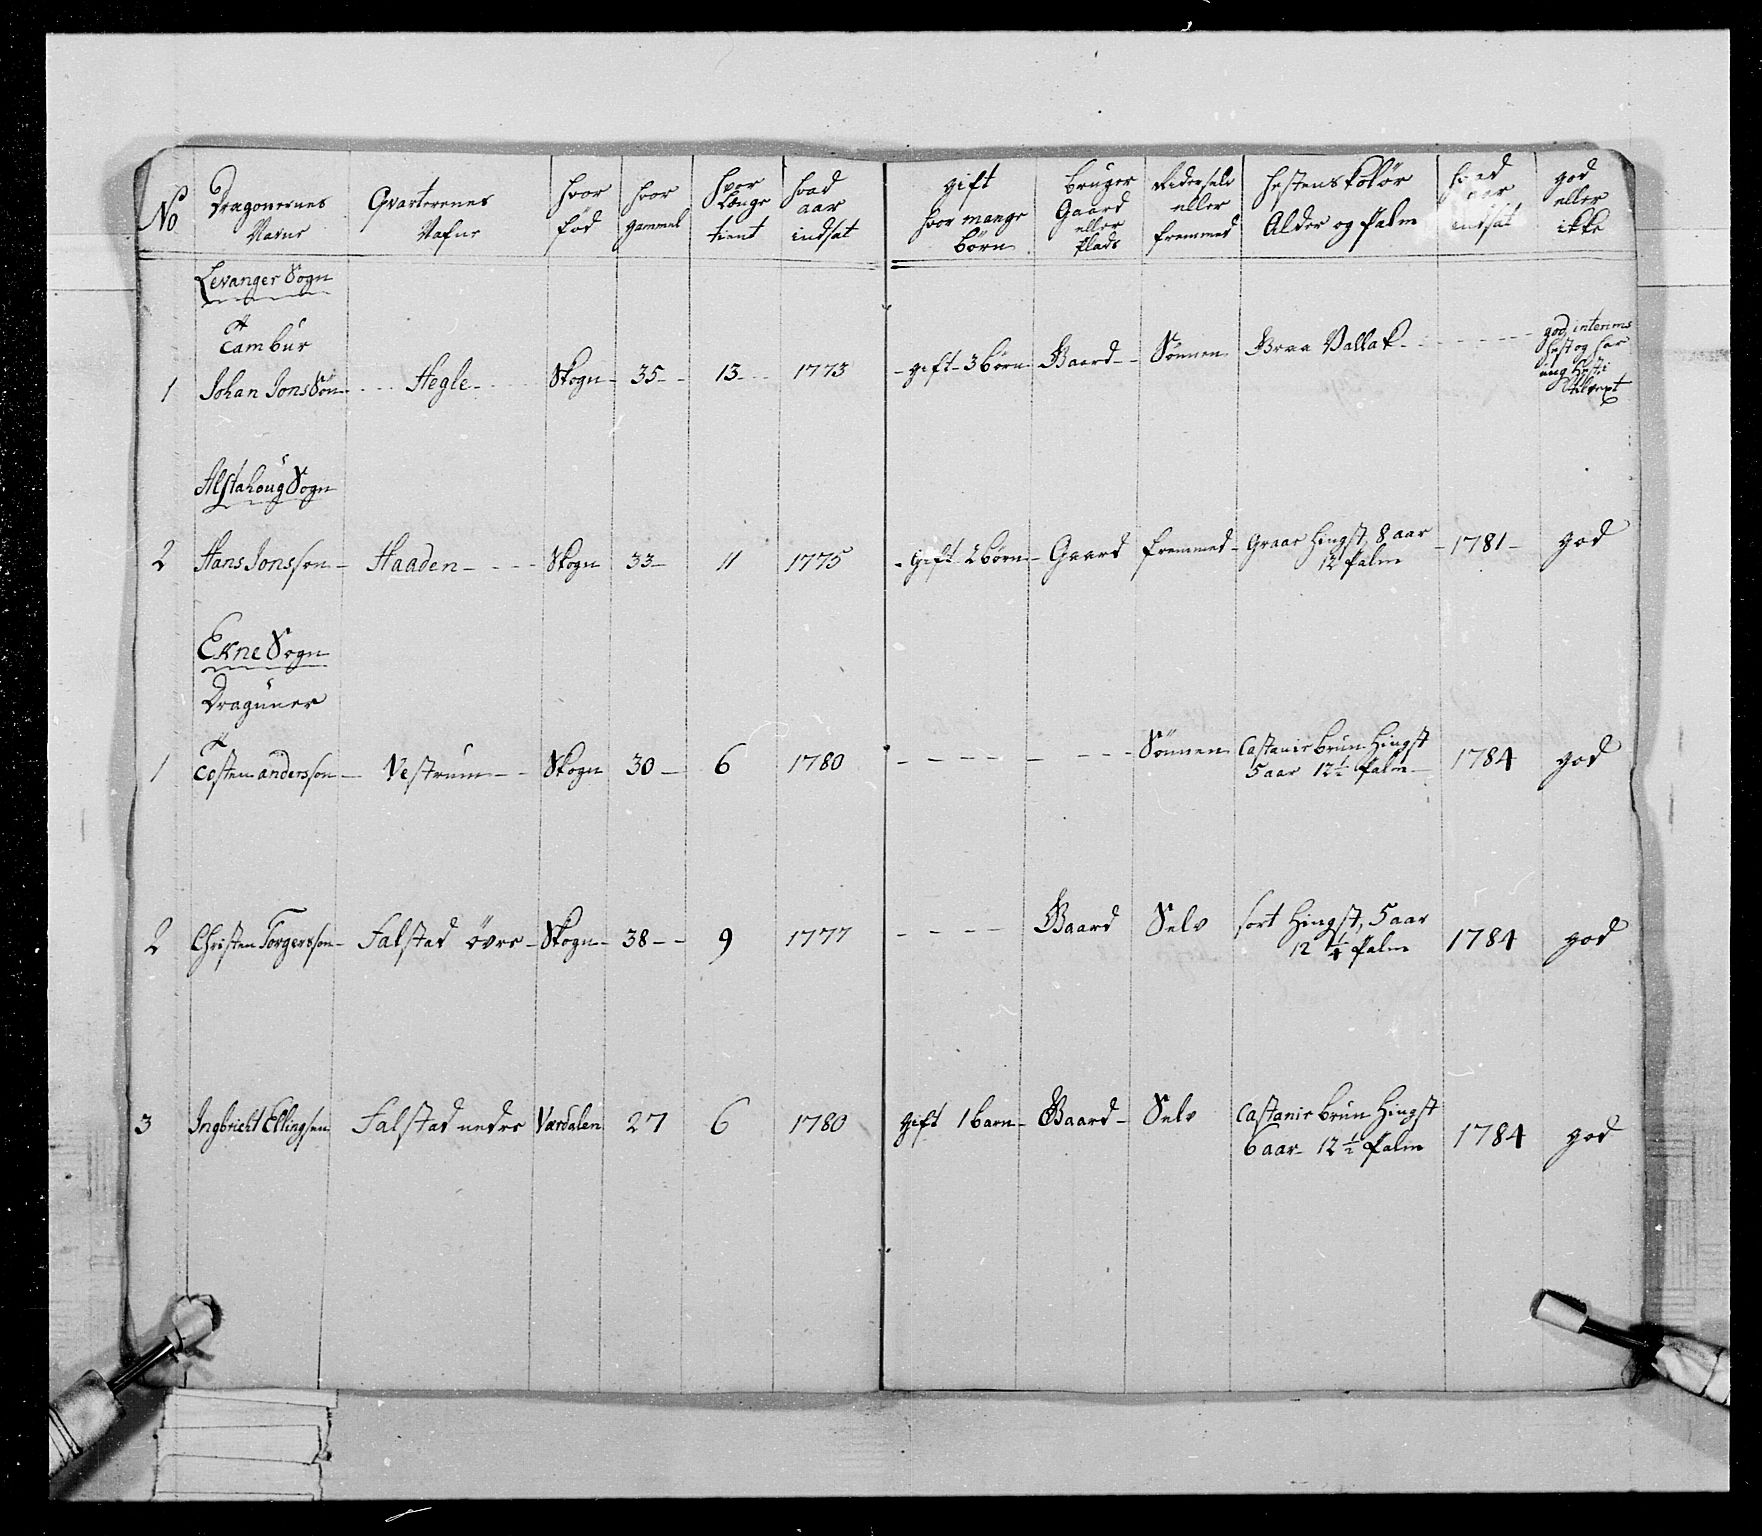 No | Dragonernes Navne | Qvarterenes Nafne | hvor fød | hvor gammel | hvor Længe tient | hvad aar indsat | gift hvor mange børn | bruger Gaard eller Plads | Rider selv eller fremmed | hestens Kolør Alder og Palm | hvad aar indsat | god eller ikke
Levanger Sogn
Tambur
1 Johan Jonssøn - Hegle - Skogn - 35 - 13 - 1773 - gift - 3 børn Gaard - Sønnen Braa Vallak - god interims hest og har ung hest
Alstahoug Sogn
2 Hans Jonsson - Haaden - Skogn 33 - 11 1775 - gift 2 børn - Gaard fremmed - Graae Hingst, 8 aar 12 Palm - 1781 - god
Ekne Sogn
Draguner
1 Tosten andersson - Vestrum - Skogn 30 - 6 1780 - - - - - - - Sønnen Castanie brun Hingst 5 aar 12½ Palm - 1784 god
2 Christen Torgersson - Falstad øvre - Skogn - 38 - - 9 1777 - - - - Gaard Selv sort Hingst, 5 aar 12 ¼ Palm 1784 god
3 Ingbricht Ellingsen Falstad nedre Værdalen 27 6 1780 gift 1 barn - Gaard - Selv Castanie brun Hingst 6 aar - 12½ Palm 1784 god